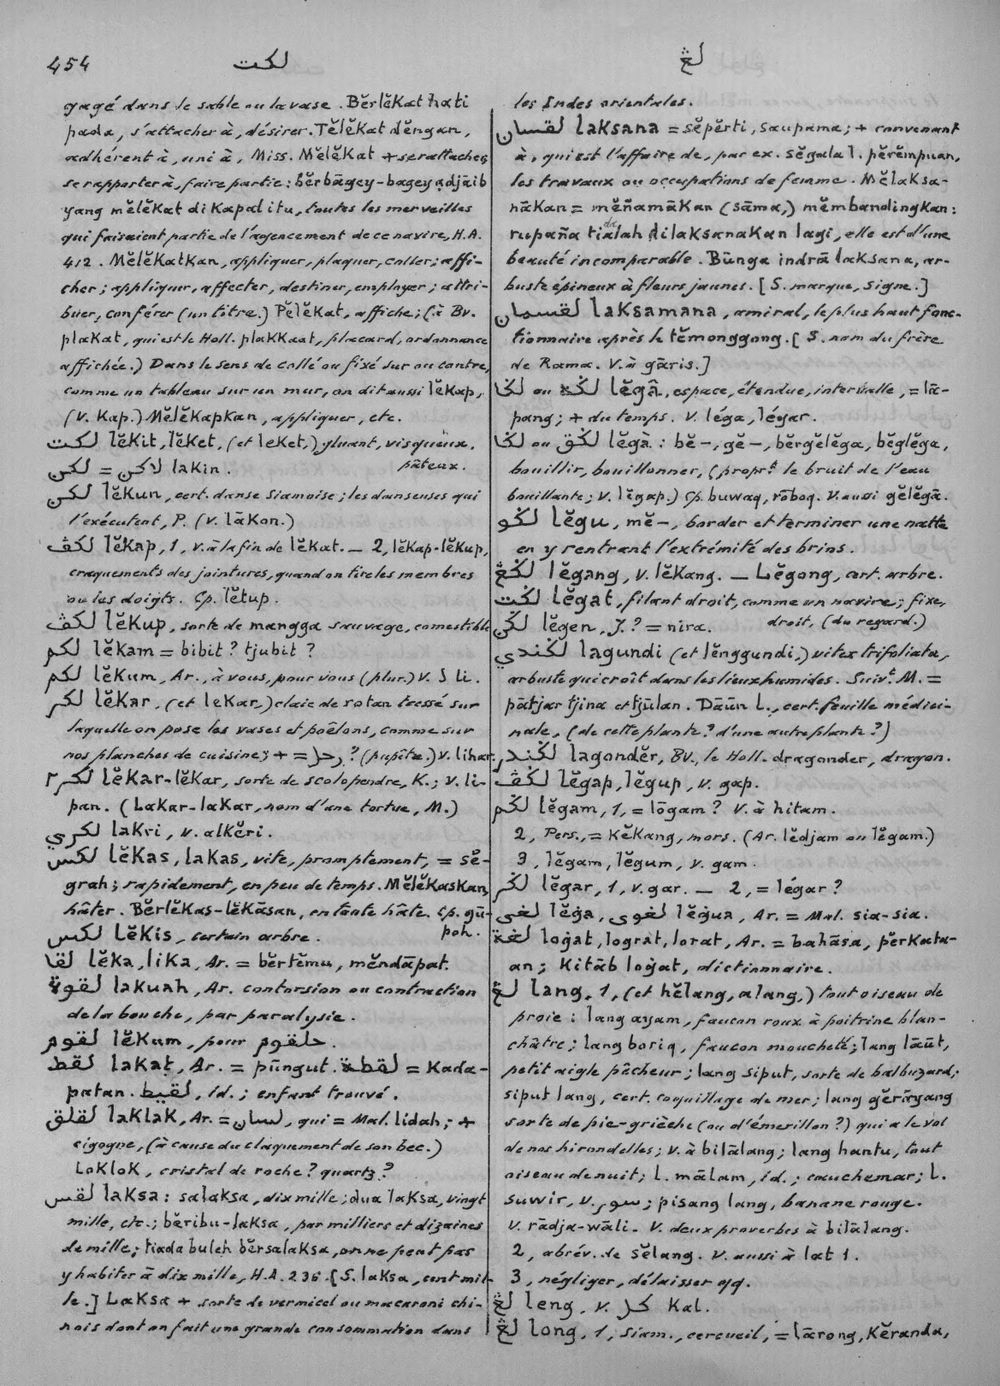 454
لكت
لڠ
gagé dans le sable ou la vase. Bĕrlĕkat hati
pada, s'attacher à, désirer. Tĕlĕkat dĕngan,
adhérent à, uni à, Miss. Mĕlĕkat + se rattacher,
se rapporter à, faire partie: bĕrbāgey-bagey adjāib
yang mĕlĕkat di kapal itu, toutes les merveilles
qui faisaient partie de l'agencement de ce navire, H.A.
412. Mĕlĕkatkan, appliquer, plaquer, coller; affi-
cher; appliquer, affecter, destiner, employer; attri-
buer, conférer (un titre.) Pĕlĕkat, affiche; (à Bv.
plakat, qui est le Holl. plakkaat, placard, ordonnance
affichée.) Dans le sens de collé ou fixé sur ou contre,
comme un tableau sur un mur, on dit aussi lĕkap,
(v. kap.) Mĕlĕkapkan, appliquer, etc.
لكت lĕkit, lĕket, (et leket,) gluant, visqueux,
pâteux.
لكن = لاكن lakin.
لكن lĕkun, cert. danse siamoise; les danseuses qui
l'exécutent, P. (v. lākon.)
لكڤ lĕkap, 1, v. à la fin de lĕkat. — 2, lĕkap-lĕkup,
craquements des jointures, quand on tire les membres
ou les doigts. Cp. lĕtup.
لكڤ lĕkup, sorte de mangga sauvage, comestible
لكم lĕkam = bibit? tjubit?
لكم lĕkum, Ar., à vous, pour vous (plur.) v. ل li.
لكر lĕkar, (et lekar,) claie de rotan tressé sur
laquelle on pose les vases et poêlons, comme sur
nos planches de cuisine; + = رحل? (pupître.) v. lihar.
لكر٢ lĕkar-lĕkar, sorte de scolopendre, K.; v. li-
pan. (Lakar-lakar, nom d'une tortue, M.)
لكري lakri, v. alkĕri.
لكس lĕkas, lakas, vite, promptement, = sĕ-
grah; rapidement, en peu de temps. Mĕlĕkaskan,
hâter. Bĕrlĕkas-lĕkāsan, en toute hâte. Cp. gū-
poh.
لكس Lĕkis, certain arbre.
لقا lĕka, lika, Ar. = bĕrtĕmu, mĕndāpat.
لقوة lakuah, Ar. contorsion ou contraction
de la bouche, par paralysie.
لقوم lĕkum, pour حلقوم.
لقط lakaṭ, Ar. = pūngut. لقطة = kada-
patan. لقيط, id.; enfant trouvé.
لقلق laklak, Ar. = لسان, qui = Mal. lidah; +
cigogne, (à cause du claquement de son bec.)
Loklok, cristal de roche? quartz?
لقس laksa: salaksa, dix mille; dua laksa, vingt
mille, etc.; bĕribu-laksa, par milliers et dizaines
de mille; tiada buleh bĕrsalaksa, on ne peut pas
y habiter à dix mille, H.A. 236. [S. laksa, cent mil-
le.] Laksa + sorte de vermicel ou macaroni chi-
nois dont on fait une grande consommation dans
les Indes orientales.
لقسان laksana = sĕpĕrti, saupama; + convenant
à, qui est l'affaire de, par ex. sĕgala l. pĕrĕmpuan,
les travaux ou occupations de femme. Mĕlaksa-
nākan = mĕñamākan (sāma,) mĕmbandingkan:
rupaña tiadalah dilaksanakan lagi, elle est d'une
beauté incomparable. Būnga indrā laksana, ar-
buste épineux à fleurs jaunes. [S. marque, signe.]
لقسمان laksamana, amiral, le plus haut fonc-
tionnaire après le tĕmonggong. [S. nom du frère
de Rama. V. à gāris.]
لݢا ou لݢه lĕgā, espace, étendue, intervalle, = lā-
pang; + du temps. v. léga, légar.
لݢا ou لݢق lĕgā: bĕ-, gĕ-, bĕrgĕlĕga, bĕglĕga,
bouillir, bouillonner, (propr.t le bruit de l'eau
bouillante; v. lĕgap.) Cp. buwaq, rōboq. V. aussi gĕlĕgā.
لݢو lĕgu, mĕ-, border et terminer une natte
en y rentrant l'extrémité des brins.
لݢڠ lĕgang, v. lĕkang. — Lĕgong, cert. arbre.
لݢت lĕgat, filant droit, comme un navire; fixe,
droit, (du regard.)
لݢن lĕgen, J.? = nira.
لݢندي lagundi (et lĕnggundi,) vitex trifoliata,
arbuste qui croît dans les lieux humides. Suiv.t M. =
pātjar tjina et tjūlan. Dāūn L., cert. feuille médici-
nale, (de cette plante? d'une autre plante?)
لݢندر lagondĕr, Bv., le Holl. dragonder, dragon.
لݢڤ lĕgap, lĕgup, v. gap.
لݢم lĕgam, 1, = lōgam? v. à hitam.
2, Pers., = kĕkang, mors. (Ar. lĕdjam ou lĕgam.)
3, lĕgam, lĕgum, v. gam.
لݢر lĕgar, 1, v. gar. — 2, = légar?
لغى lĕġa, لغوى lĕġua, Ar. = Mal. sia-sia.
لغة loġat, lograt, lorat, Ar. = bahāsa, pĕrkata-
an; kitāb loġat, dictionnaire.
لڠ lang, 1, (et hĕlang, alang,) tout oiseau de
proie: lang ayam, faucon roux à poitrine blan-
châtre; lang boriq, faucon moucheté; lang lāūt,
petit aigle pêcheur; lang siput, sorte de balbuzard;
siput lang, cert. coquillage de mer; lang gĕrāyang
sorte de pie-grièche (ou d'émerillon?) qui a le vol
de nos hirondelles; v. à bilālang; lang hantu, tout
oiseau de nuit; l. mālam, id.; cauchemar; l.
suwir, v. سور; pisang lang, banane rouge.
v. rādja-wāli. v. deux proverbes à bilālang.
2, abrév. de sĕlang. v. aussi à lat 1.
3, négliger, délaisser qq.
لڠ leng, v. كل kal.
لڠ long, 1, Siam., cercueil, = lārong, kĕranda,